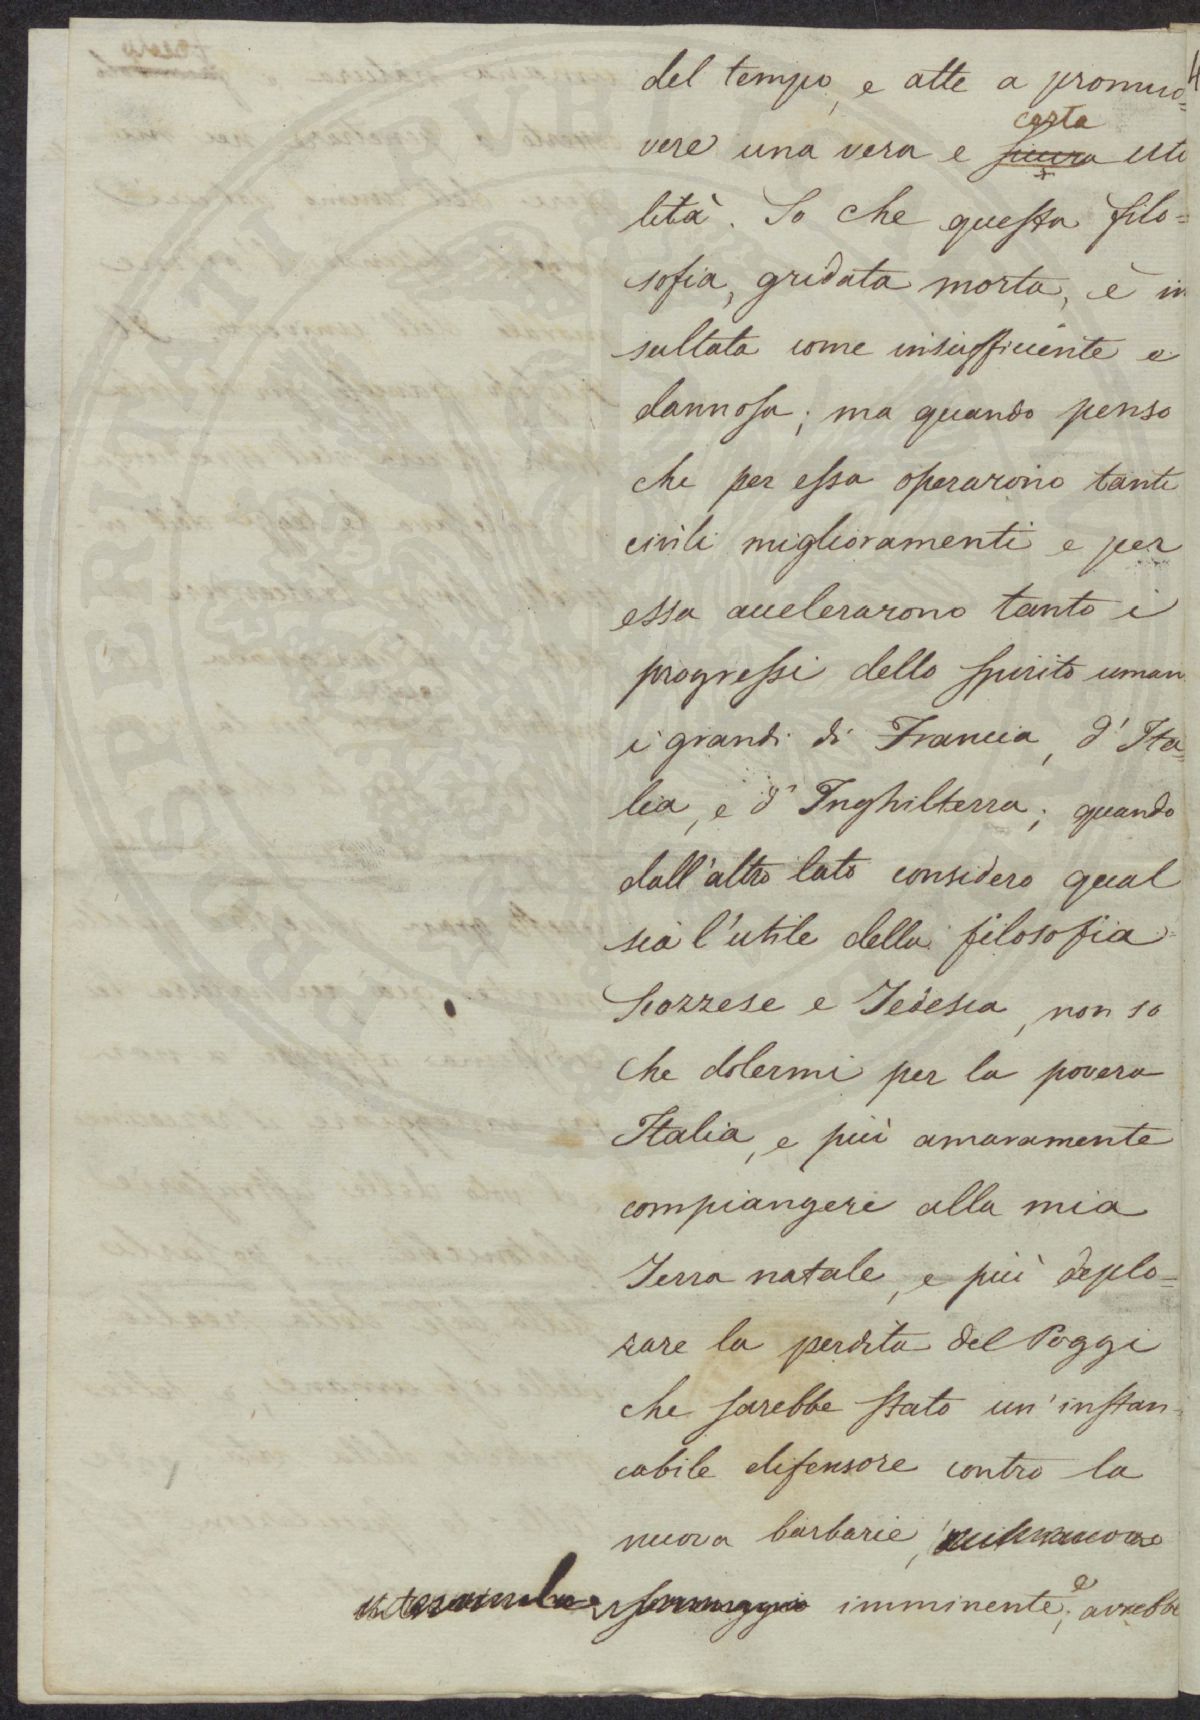 del tempo, e atte a promuo=
vere una vera e certa uti
lità. So che questa filo=
sofia, gridata morta, è in
sultata come insufficiente e
dannosa; ma quando penso
che per essa operarono tanti
civili miglioramenti e per
essa accelerarono tanto i
progressi dello spirito uman
i grandi di Francia, d'Ita=
lia, e d'Inghilterra; quando
dall'altro lato considero qual
sia l'utile della filosofia
Scozzese e Tedesca, non so
che dolermi per la povera
Italia, e più amaramente
compiangere alla mia
Terra natale, e più deplo=
rare la perdita del Poggi
che sarebbe stato un'instan
cabile difensore contro la
nuova barbarie,
imminente; e avrebbe